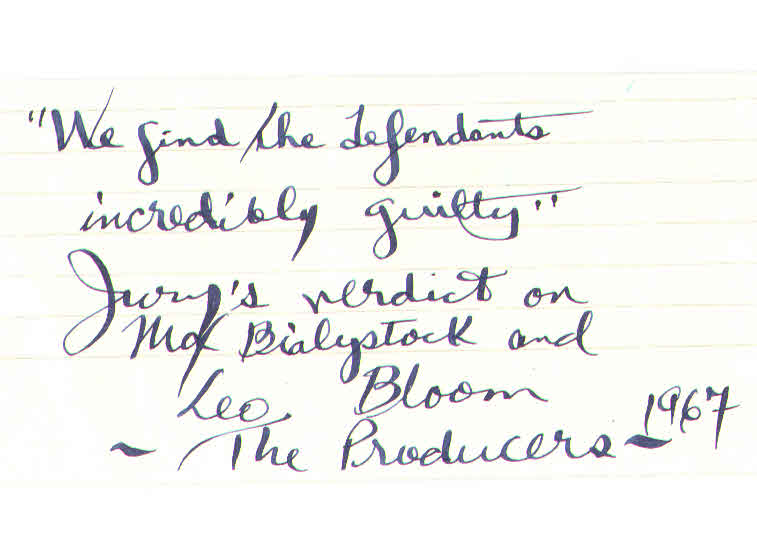 "We find the defendants
incredibly guilty"
Jury's verdict on
Max Bialystock and
Leo Bloom
~ The Producers ~ 1967